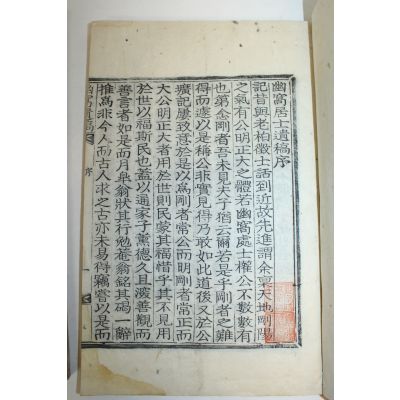 幽窩居士遺稿序
記昔與老柏徵士話到近故先進謂余稟天地剛陽
之氣有公明正大之體若幽窩處士權公不數數有
也第金剛者吾未見夫子猶云爾若是乎剛者之難
得而遽以是稱公非實見得乃敢如此道後又於公
廣記屢致意於是以爲剛者常公而明剛者常正而
大公明正大者用於世則民蒙其福惜乎其不見用
於世以福斯民也蓋以通家子薰德久且深善觀而
善言者如是而月皐翁狀其行勉菴翁銘其碣一辭
推爲非今人而古人求之古亦未易得竊嘗以是而
序